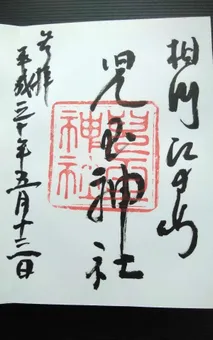 相州江の島
児玉神社
奉拝
平成三十年五月十三日
児玉神社